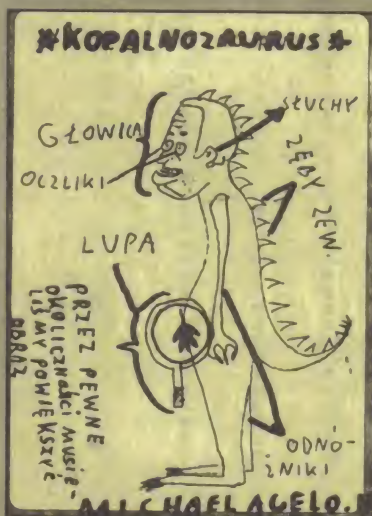 *KOPALNOZAURUS*
GŁOWICA
SŁUCHY
OCZLIKI
ZĘBY ZEW.
LUPA
PRZEZ PEWNE
OKOLICZNOŚCI MUSIE-
LIŚMY POWIĘKSZYĆ
OBRAZ
ODNÓ-
ŻNIKI
MICHAEL AGELO.